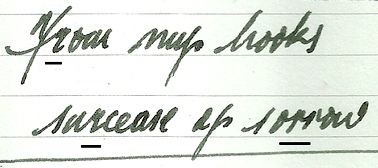 From my books
surcease of sorrow